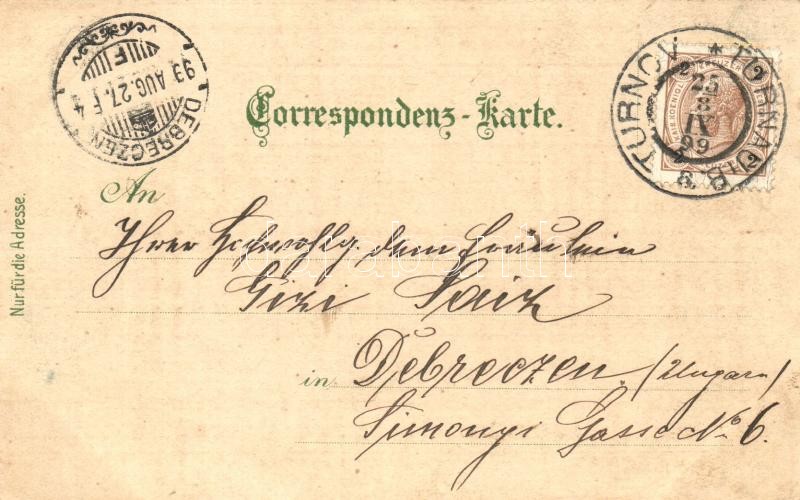 DEBRECZEN
F
93 AUG. 27. F 4
TURNOV * TURNAU
25
8
IX
99
Correspondenz-Karte.
An
Ihrer Hochwohlg. dem Fräulein
Gizi
in Debreczen. (Ungarn)
Simonyi Gasse No 6.
Nur für die Adresse.